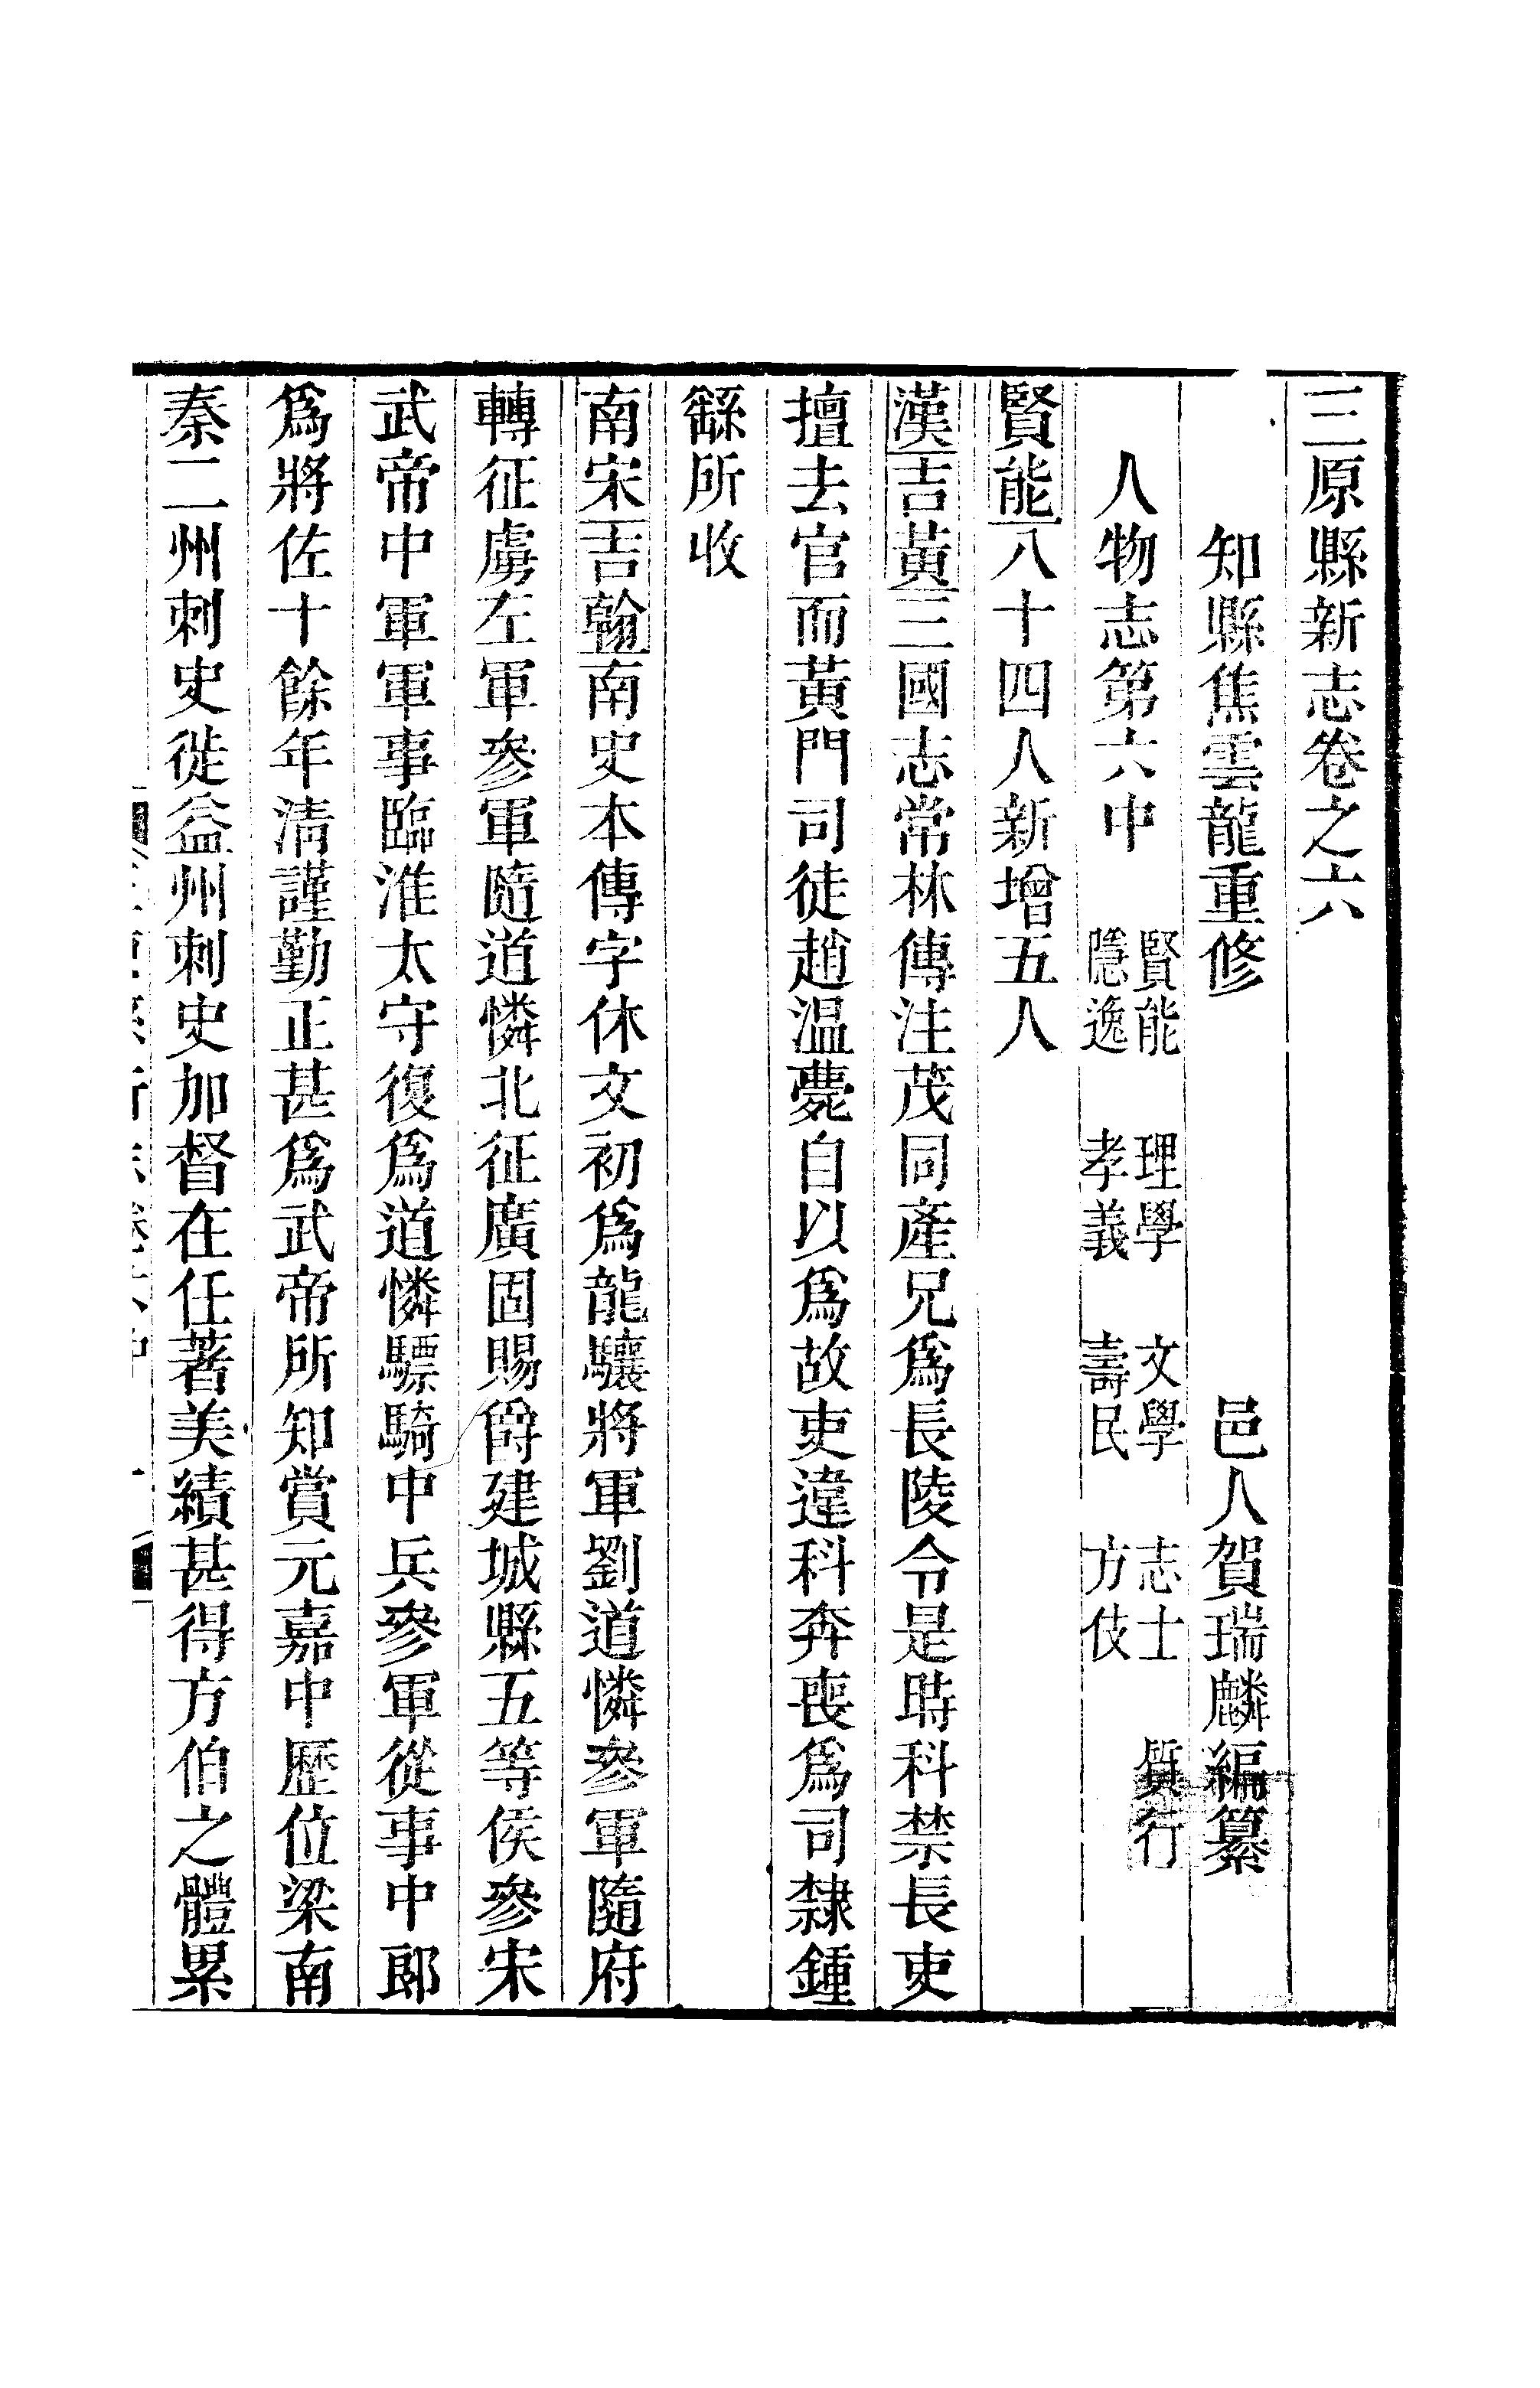 三原縣新志卷之六
知縣焦雲龍重修　邑人賀瑞麟編纂
人物志第六中　賢能　理學　文學　志士　質行
隱逸　孝義　壽民　方伎
賢能八十四人新增五人
漢吉黃三國志常林傳注茂同產兄爲長陵令是時科禁長吏
擅去官而黃門司徒趙温薨自以爲故吏違科奔喪爲司隸鍾
繇所收
南宋吉翰南史本傳字休文初爲龍驤將軍劉道憐參軍隨府
轉征虜左軍參軍隨道憐北征廣固賜爵建城縣五等侯參宋
武帝中軍軍事臨淮太守復爲道憐驃騎中兵參軍從事中郎
爲將佐十餘年清謹勤正甚爲武帝所知賞元嘉中歷位梁南
秦二州刺史徙益州刺史加督在任著美績甚得方伯之體累